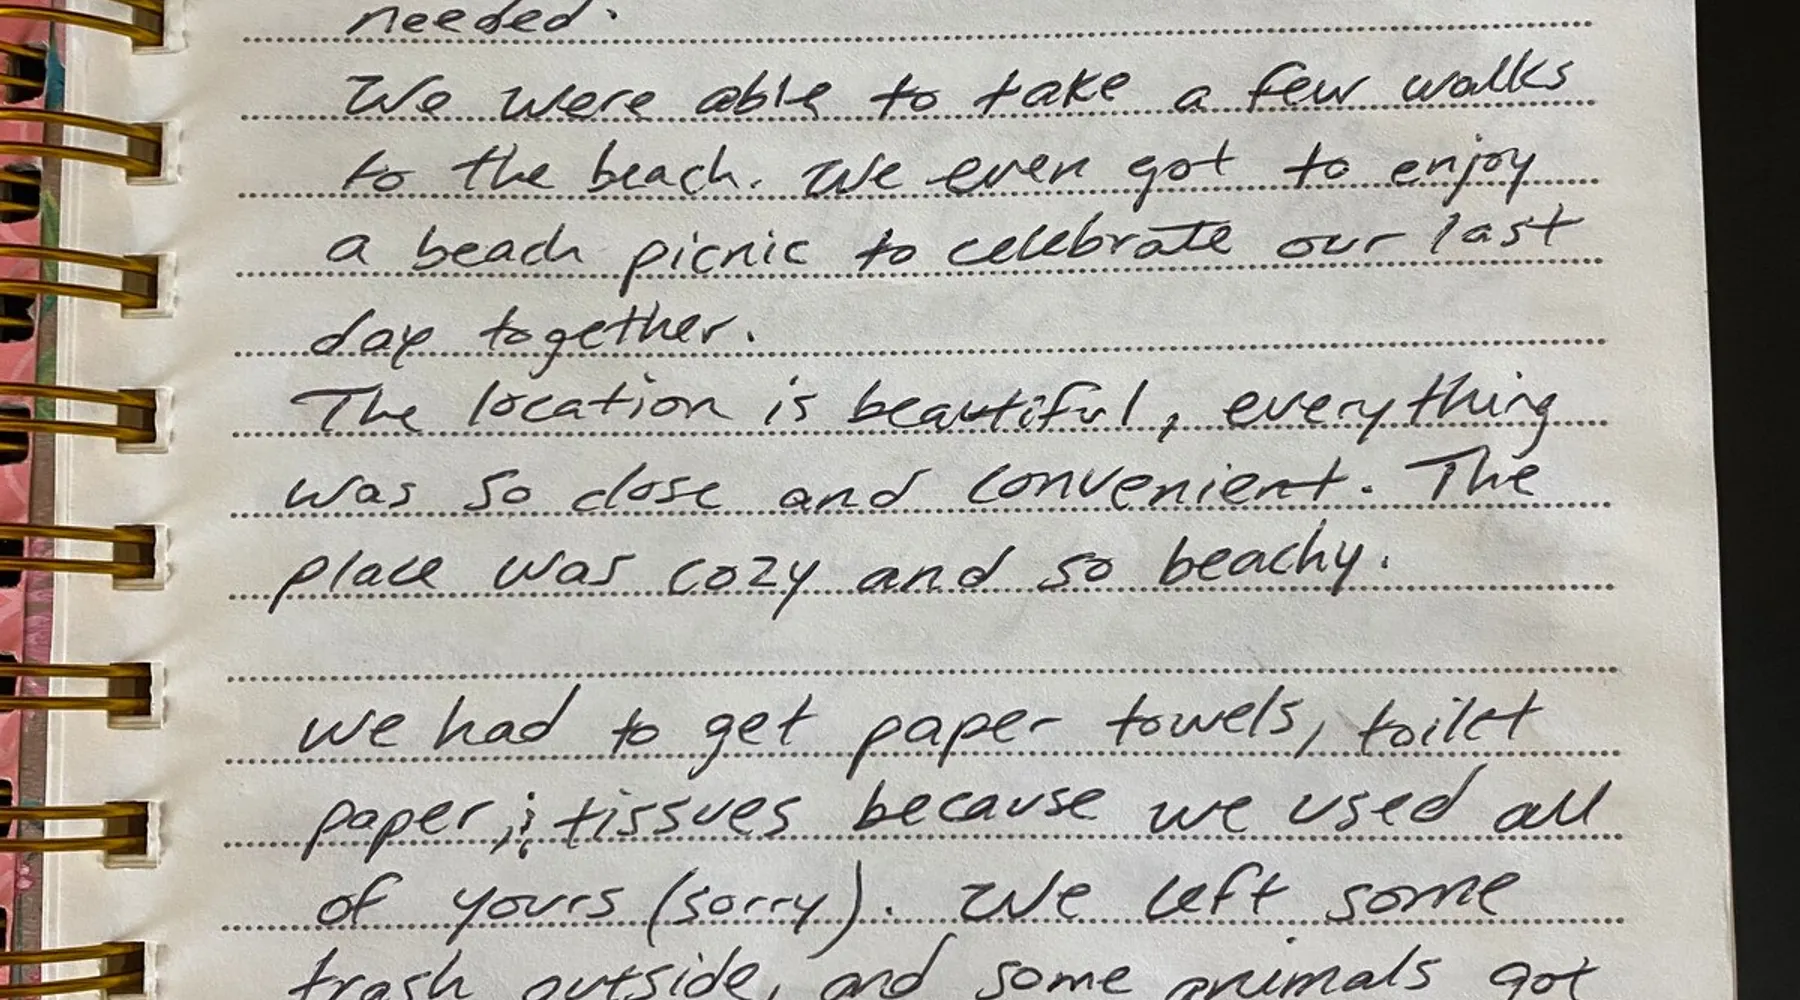 needed.
We were able to take a few walks
to the beach. We even got to enjoy
a beach picnic to celebrate our last
day together.
The location is beautiful, everything
was so close and convenient. The
place was cozy and so beachy.
we had to get paper towels, toilet
paper, ; tissues because we used all
of yours (sorry). We left some
trash outside, and some animals got